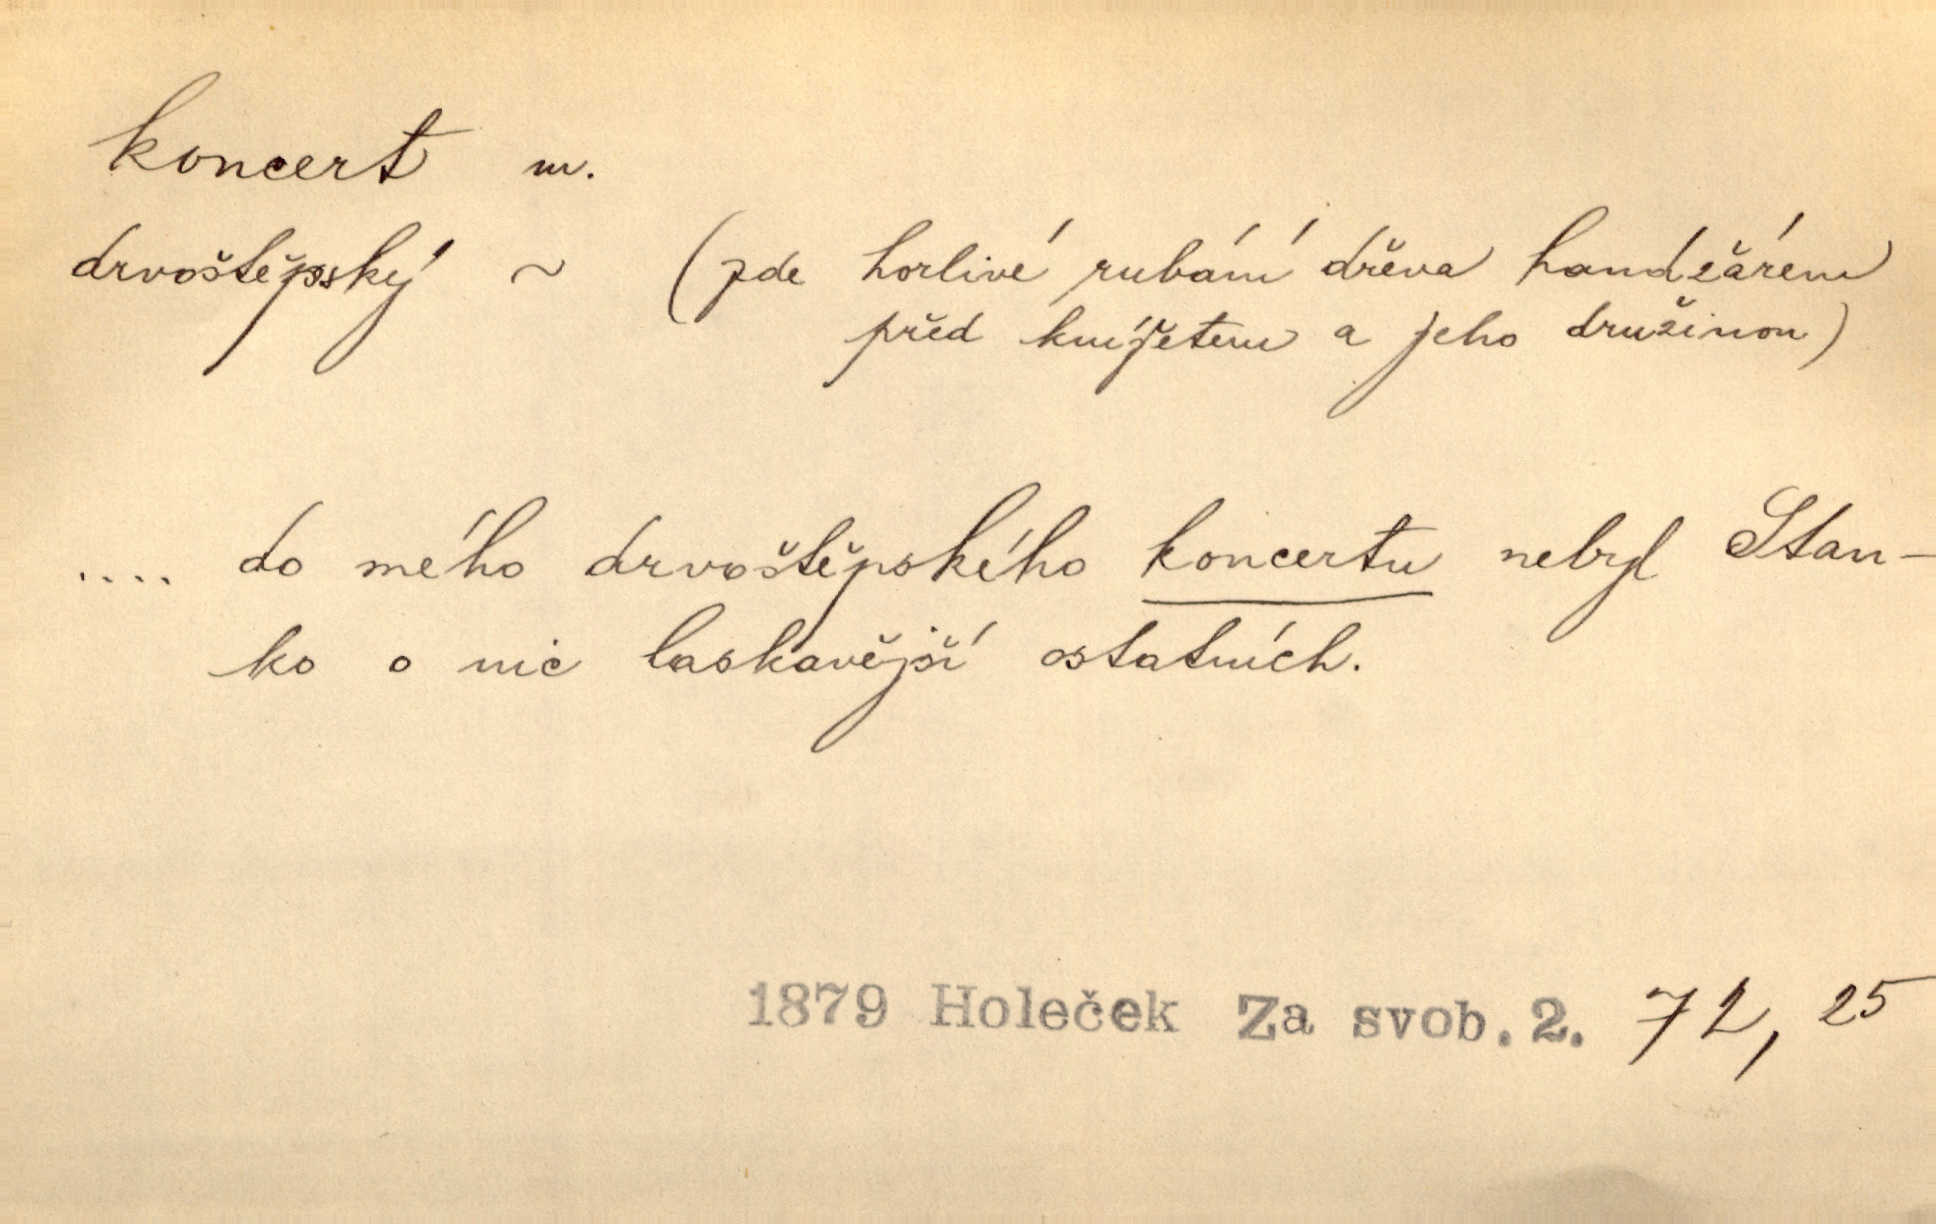 koncert m.
drvoštěpský ~ (zde horlivé rubání dřeva handžárem
před knížetem a jeho družinou)
.... do mého drvoštěpského koncertu nebyl Stan-
ko o nic laskavější ostatních.
1879 Holeček Za svob. 2. 72, 25